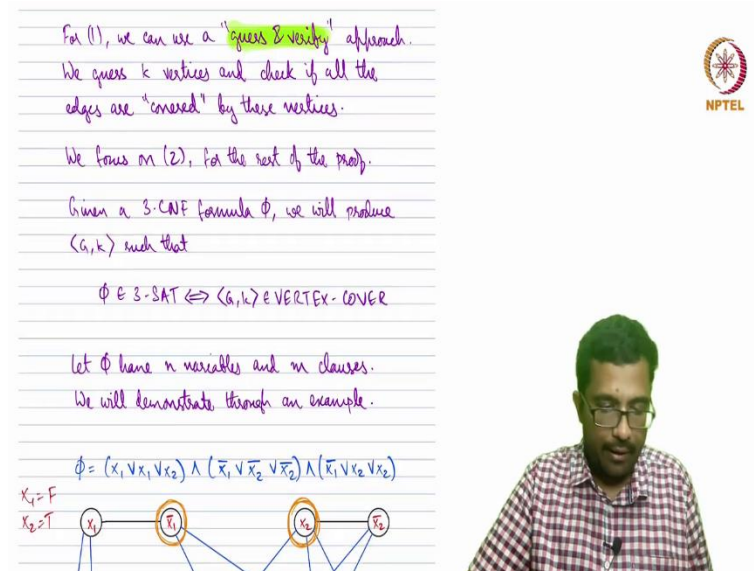 For (1), we can use a "guess & verify" approach.
We guess k vertices and check if all the
edges are "covered" by these vertices.
We focus on (2), for the rest of the proof.
Given a 3-CNF formula ϕ, we will produce
⟨G,k⟩ such that
ϕ ∈ 3-SAT ⟺ ⟨G,k⟩ ∈ VERTEX-COVER
Let ϕ have n variables and m clauses.
We will demonstrate through an example.
ϕ = (x₁ ∨ x₁ ∨ x₂) ∧ (x̄₁ ∨ x̄₂ ∨ x̄₂) ∧ (x̄₁ ∨ x₂ ∨ x₂)
x₁ = F
x₂ = T
x₁ x̄₁ x₂ x̄₂
NPTEL